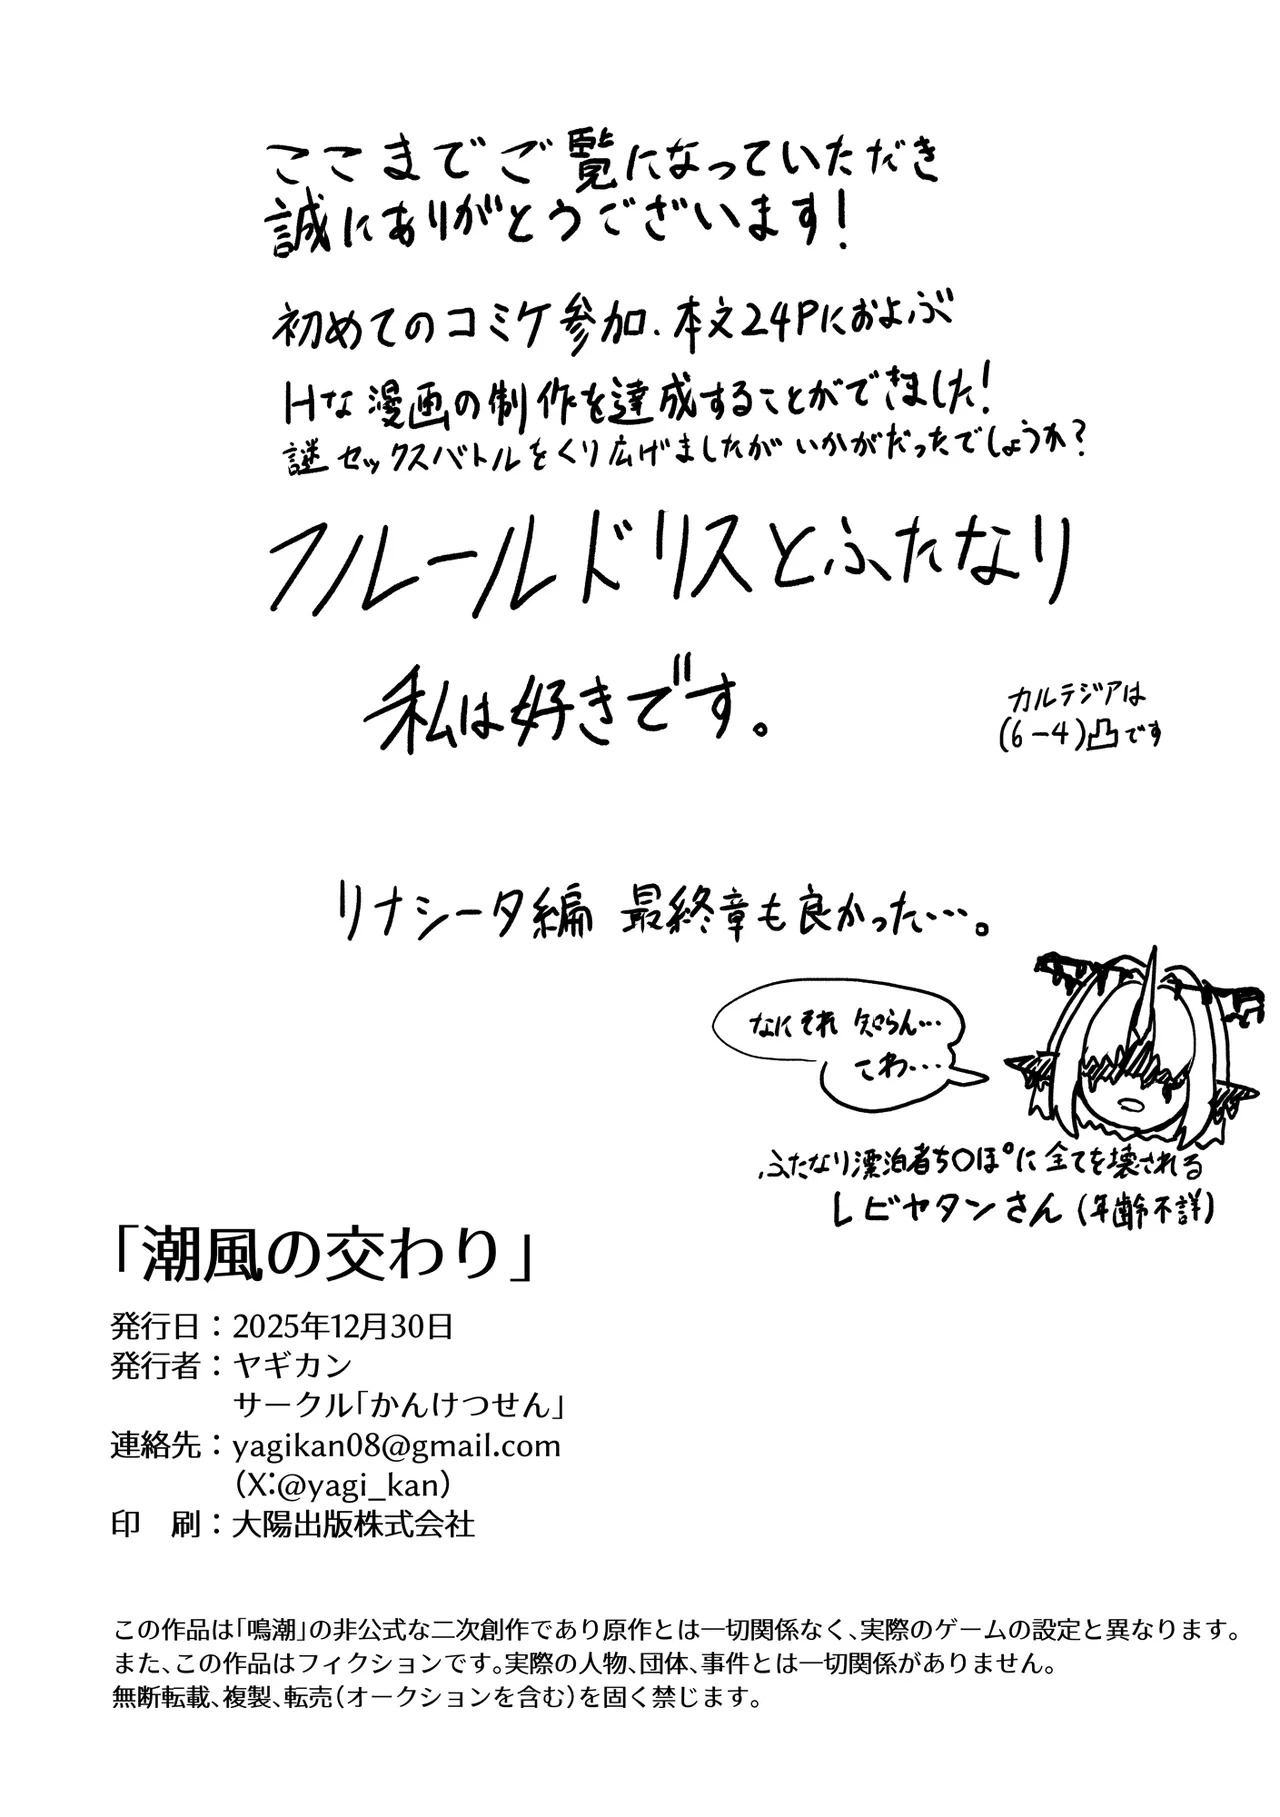 ここまでご覧になっていただき
誠にありがとうございます!
初めてのコミケ参加、本文24Pにおよぶ
Hな漫画の制作を達成することができました!
謎セックスバトルをくり広げましたがいかがだったでしょうか?
フルールドリスとふたなり
私は好きです。
カルテジアは
(6-4)凸です
リナシータ編 最終章も良かった…。
なにそれ 知らん…
こわ…
ふたなり漂泊者ち〇ぽに全てを壊される
レビヤタンさん(年齢不詳)
「潮風の交わり」
発行日：2025年12月30日
発行者：ヤギカン
サークル「かんけつせん」
連絡先：yagikan08@gmail.com
(X:@yagi_kan)
印　刷：大陽出版株式会社
この作品は「鳴潮」の非公式な二次創作であり原作とは一切関係なく、実際のゲームの設定と異なります。
また、この作品はフィクションです。実際の人物、団体、事件とは一切関係がありません。
無断転載、複製、転売(オークションを含む)を固く禁じます。